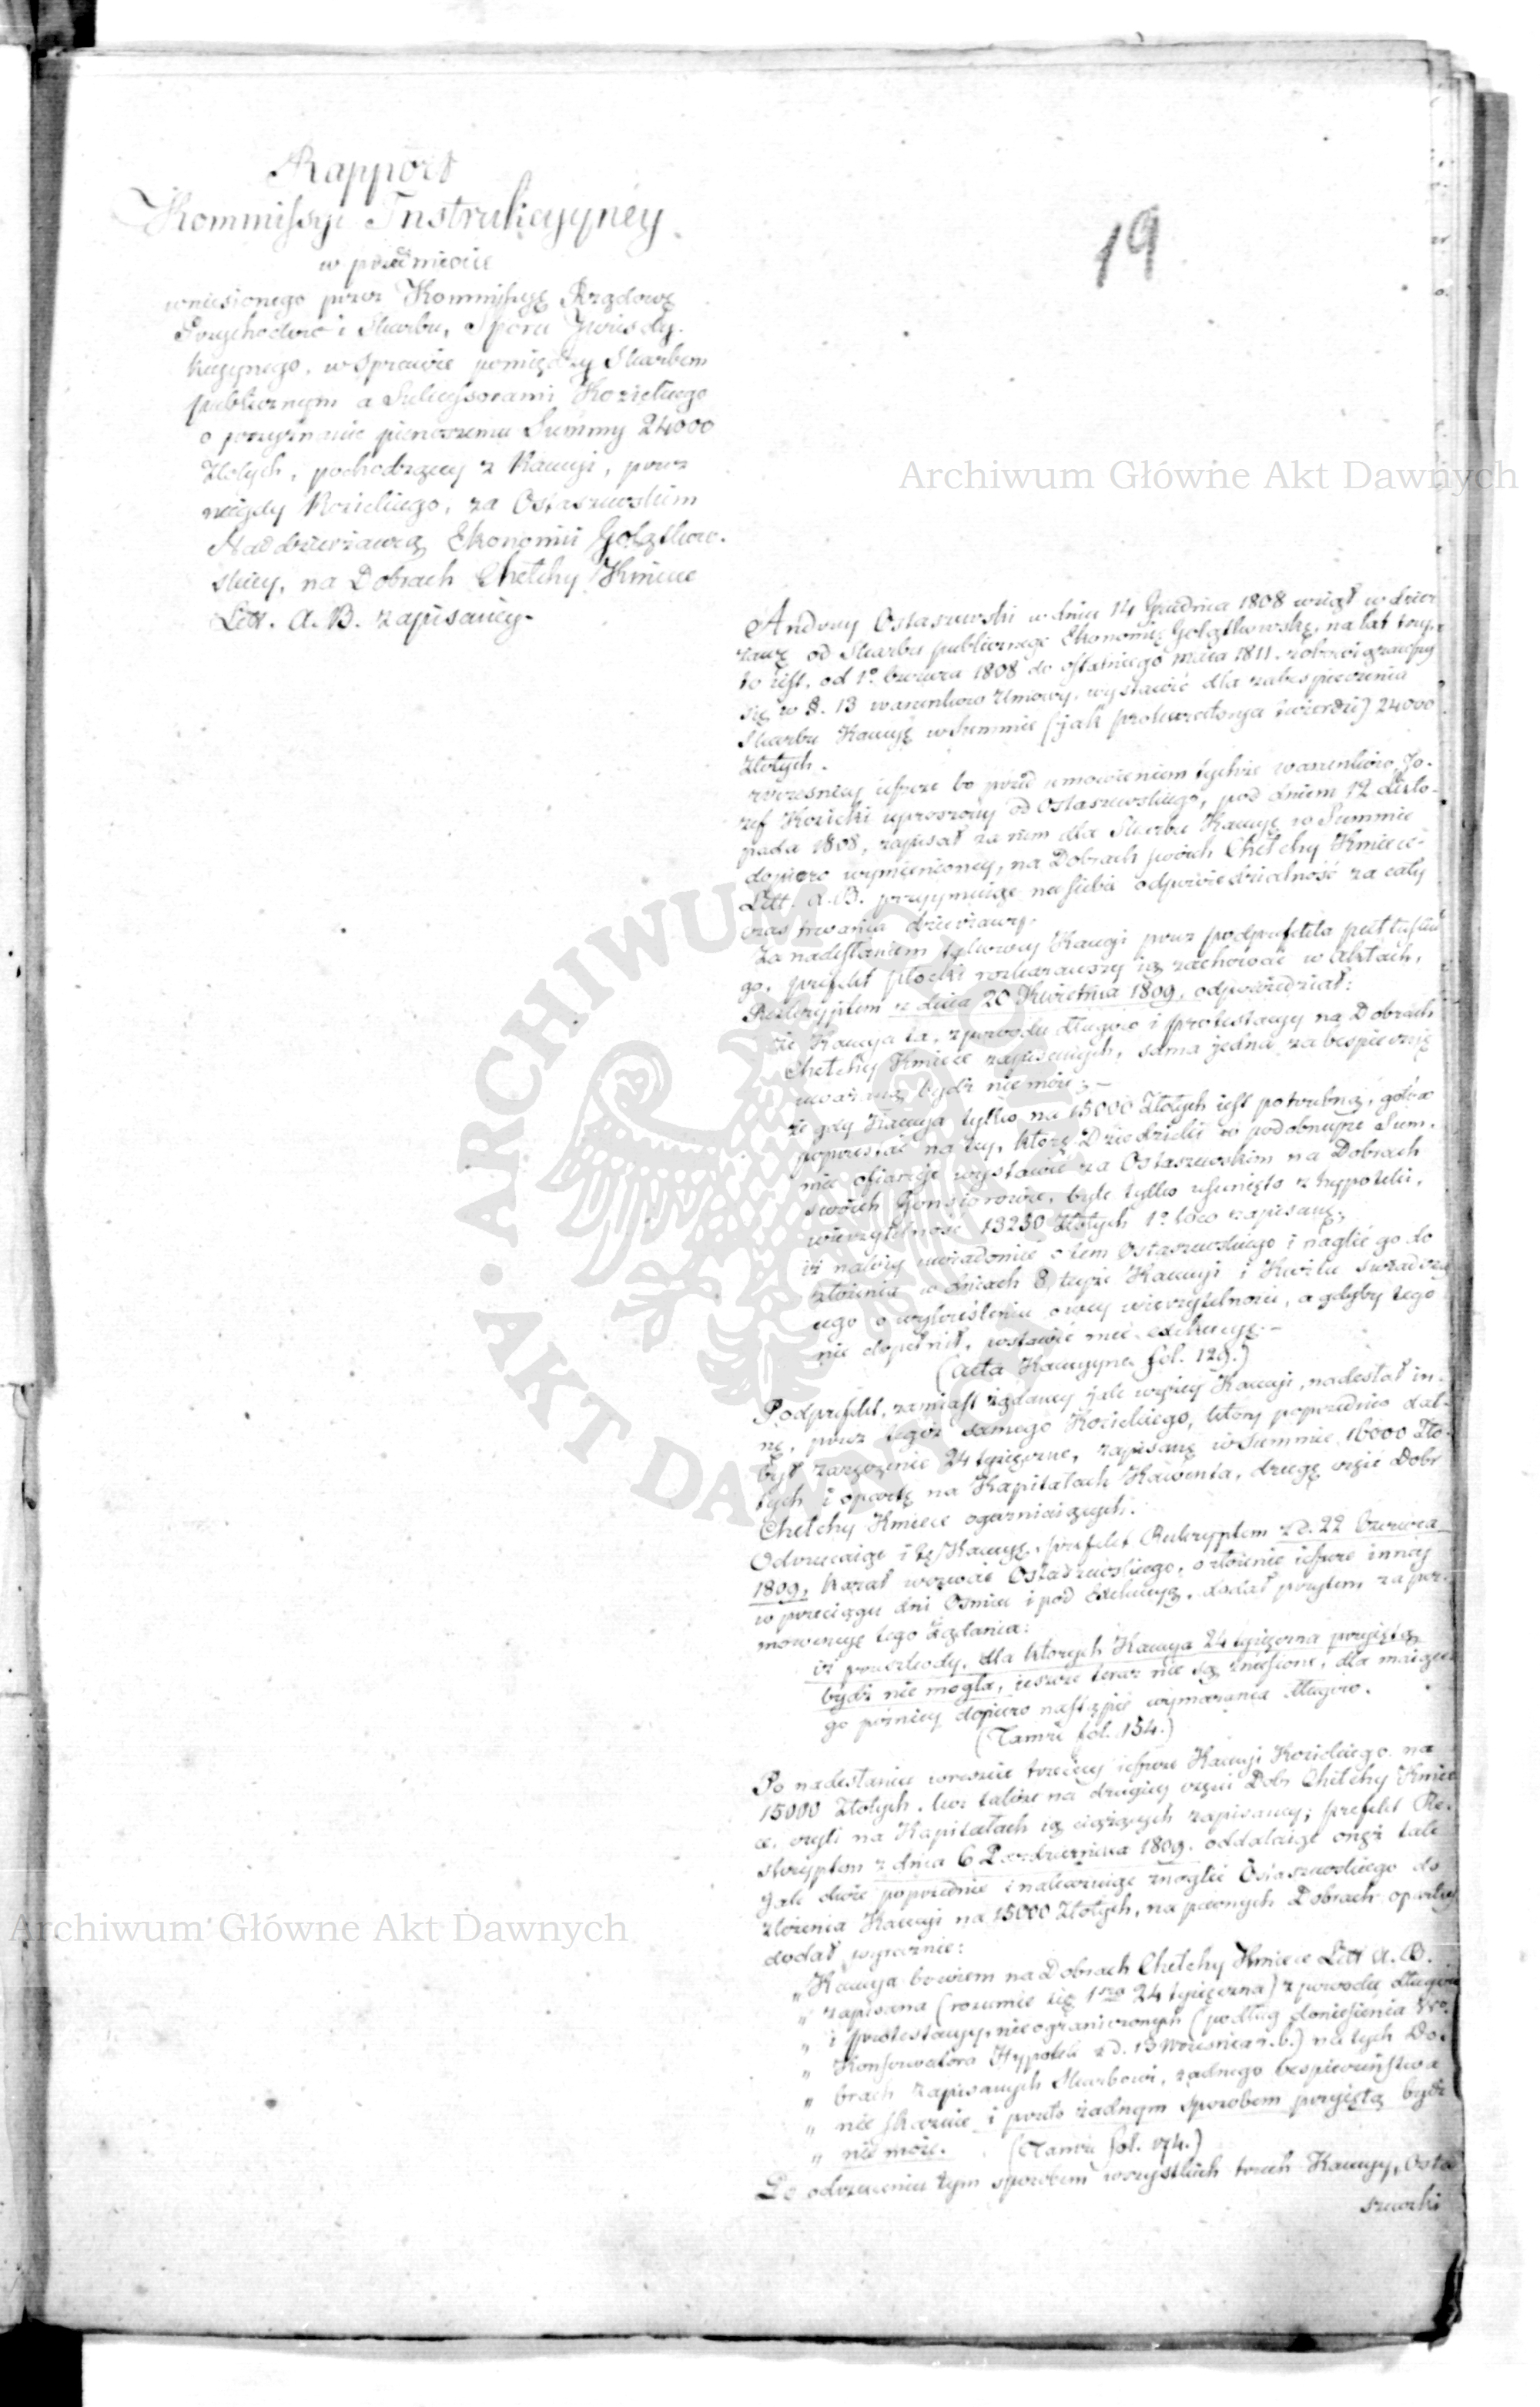 Rapport
Kommissyi Instrukcyyney
w przedmiocie
wniesionego przez Kommissyę Rządową
Przychodów i Skarbu, Sporu Jurisdy-
kcyynego, w Sprawie pomiędzy Skarbem
publicznym a Sukcessorami Kozickiego
o przyznanie pierwszemu Summy 24000
Złotych, pochodzącey z Kaucyi, przez
niegdy Kozickiego, za Ostaszewskim
Naddzierżawcą Ekonomii Gołątkow-
skiey, na Dobrach Chełchy Kmiece
Litt. A. B. zapisaney.
19
Andrzey Ostaszewski w dniu 14 Grudnia 1808 wziął w dzier-
żawę od Skarbu publicznego Ekonomię Gołątkowską, na lat trzy,
to iest, od 1º Czerwca 1808 do ostatniego Maia 1811. zobowiązawszy
się w §. 13 warunków Umowy, wystawić dla zabespieczenia
Skarbu Kaucyę w Summie (jak prokuratorya twierdzi) 24000
Złotych.
Wcześniey ieszcze bo przed umowieniem tychże warunków, Jó-
zef Kozicki uproszony od Ostaszewskiego, pod dniem 12 Listo-
pada 1808, zapisał za nim dla Skarbu Kaucyę w Summie
dopiero wymienioney, na Dobrach swoich Chełchy Kmiece
Litt. A. B. przyymuiąc na siebie odpowiedzialność za cały
czas trwania dzierżawy.
Za nadesłaniem takowey Kaucyi przez podprefekta pułtuskie-
go, prefekt płocki rozkazawszy ią zachować w Aktach,
Reskryptem z dnia 20 Kwietnia 1809. odpowiedział:
że Kaucya ta, z powodu długów i protestacyy na Dobrach
Chełchy Kmiece zapisanych, sama jedna za bespieczną
uważaną bydź nie może; –
że gdy Kaucya tylko na 15000 Złotych iest potrzebną, gotów
poprzestać na tey, którą Dziedzicki w podobneyże Sum-
mie ofiaruje wystawić za Ostaszewskim na Dobrach
swoich Gonsiorowie, byle tylko usunięto z hyppoteki,
wierzytelność 13250 Złotych 1º loco zapisaną;
iż należy uwiadomić o tem Ostaszewskiego i naglić go do
złożenia w dniach 8, teyże Kaucyi i Kwitu świadczą-
cego o wykreśleniu owey wierzytelności, a gdyby tego
nie dopełnił, postawić mieć exekucyę. –
(Acta Kaucyyne fol. 129.)
Podprefekt, zamiast żądaney jak wyżey Kaucyi, nadesłał in-
ną, przez tegoż samego Kozickiego, który poprzednio dał
był zaręczenie 24 tysięczne, zapisaną w Summie 16000 Zło-
tych i opartą na Kapitałach Kawenta, drugą część Dóbr
Chełchy Kmiece ogarniaiących.
Odrzucaiąc i tę Kaucyę, prefekt Reskryptem z d. 22 Czerwca
1809, kazał wezwać Ostaszewskiego, o złożenie ieszcze inney
w przeciągu dni Ośmiu i pod Exekucyą, dodał przytem za per-
mowencyę tego żądania:
iż przeszkody, dla których Kaucya 24 tysięczna przyiętą
bydź nie mogła, ieszcze teraz nie są zniesione, dla maiące-
go pozniey dopiero nastąpić wymazania długów.
(Tamże fol. 154.)
Po nadesłaniu wreszcie trzeciey ieszcze Kaucyi Kozickiego na
15000 Złotych, lecz także na drugiey części Dóbr Chełchy Kmie-
ce, czyli na Kapitałach ią ciążących zapisaney; prefekt Re-
skryptem z dnia 6 Października 1809. oddalaiąc onęż tak
jak dwie poprzednie i nakazuiąc znaglić Ostaszewskiego do
złożenia Kaucyi na 15000 Złotych, na pewnych Dobrach opartey
dodał wyraźnie:
„ Kaucya bowiem na Dobrach Chełchy Kmiece Litt A. B.
„ zapisana (rozumie się 1sza 24 tysięczna) z powodu długów
„ i protestacyy, nieograniczonych (podług doniesienia
„ Konserwatora Hypotek z d. 13 Września r. b.) na tych Do-
„ brach zapisanych Skarbowi, żadnego bespieczeństwa
„ nie skazuie i przeto żadnym sposobem przyiętą bydź
„ nie może. (Tamże fol. 174.)
Po odrzuceniu tym sposobem wszystkich trzech Kaucyy, Osta-
szewski
Archiwum Główne Akt Dawnych
Archiwum Główne Akt Dawnych
ARCHIWUM GŁÓWNE AKT DAWNYCH